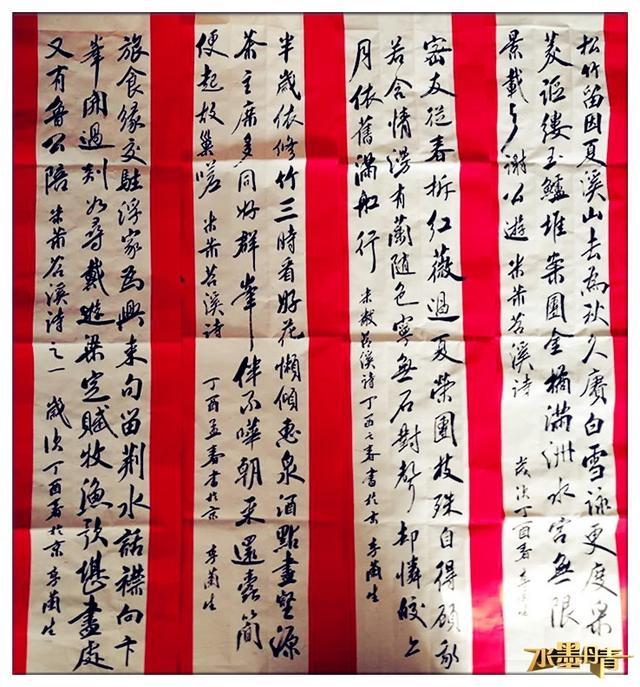 松竹留因夏溪山去為秋久賡白雪詠更度采
菱謳縷玉鱸堆案團金橘滿洲水宮無限
景載与謝公遊 米芾苕溪詩 歲次丁酉春 李蘭生
密友從春拆紅薇過夏榮團枝殊自得顧我
若含情漫有蘭隨色寧無石對聲却憐皎々
月依舊滿舡行 米芾苕溪詩丁酉之春書於京 李蘭生
半歲依修竹三時看好花懶傾惠泉酒點盡壑源
茶主席多同好群峯伴不嘩朝来還蠹簡
便起故巢嗟 米芾苕溪詩 丁酉孟春書於京 李蘭生
旅食緣交駐浮家為興来句留荆水話襟向卞
峯開過剡如尋戴遊梁定賦枚漁歌堪畫處
又有魯公陪 米芾苕溪詩之一 歲次丁酉春於京 李蘭生
水墨丹青